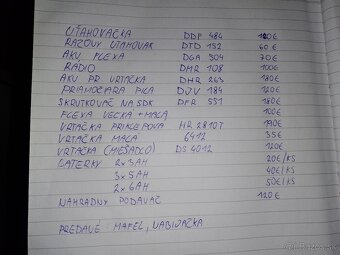 UŤAHOVAČKA DDF 484 120€
RAZOVY UŤAHOVAK DTD 152 60€
AKU. FLEXA DGA 504 70€
RADIO DMR 108 100€
AKU PR VRTAČKA DHR 263 180€
PRIAMOČIARA PILA DJV 184 120€
SKRUTKOVAČ NA SDK DFR 551 180€
FLEXA VEĽKA + MALA 100€
VRTAČKA PRIKLEPOVA HR 2810T 190€
VRTAČKA MALA 6412 35€
VRTAČKA (MIEŠADLO) DS 4012 120€
BATERKY 2x 3AH 20€/KS
3x 5AH 40€/KS
2x 6AH 50€/KS
NAHRADNY PODAVAČ 120€
PREDANÉ: MAFEL, NABIJAČKA